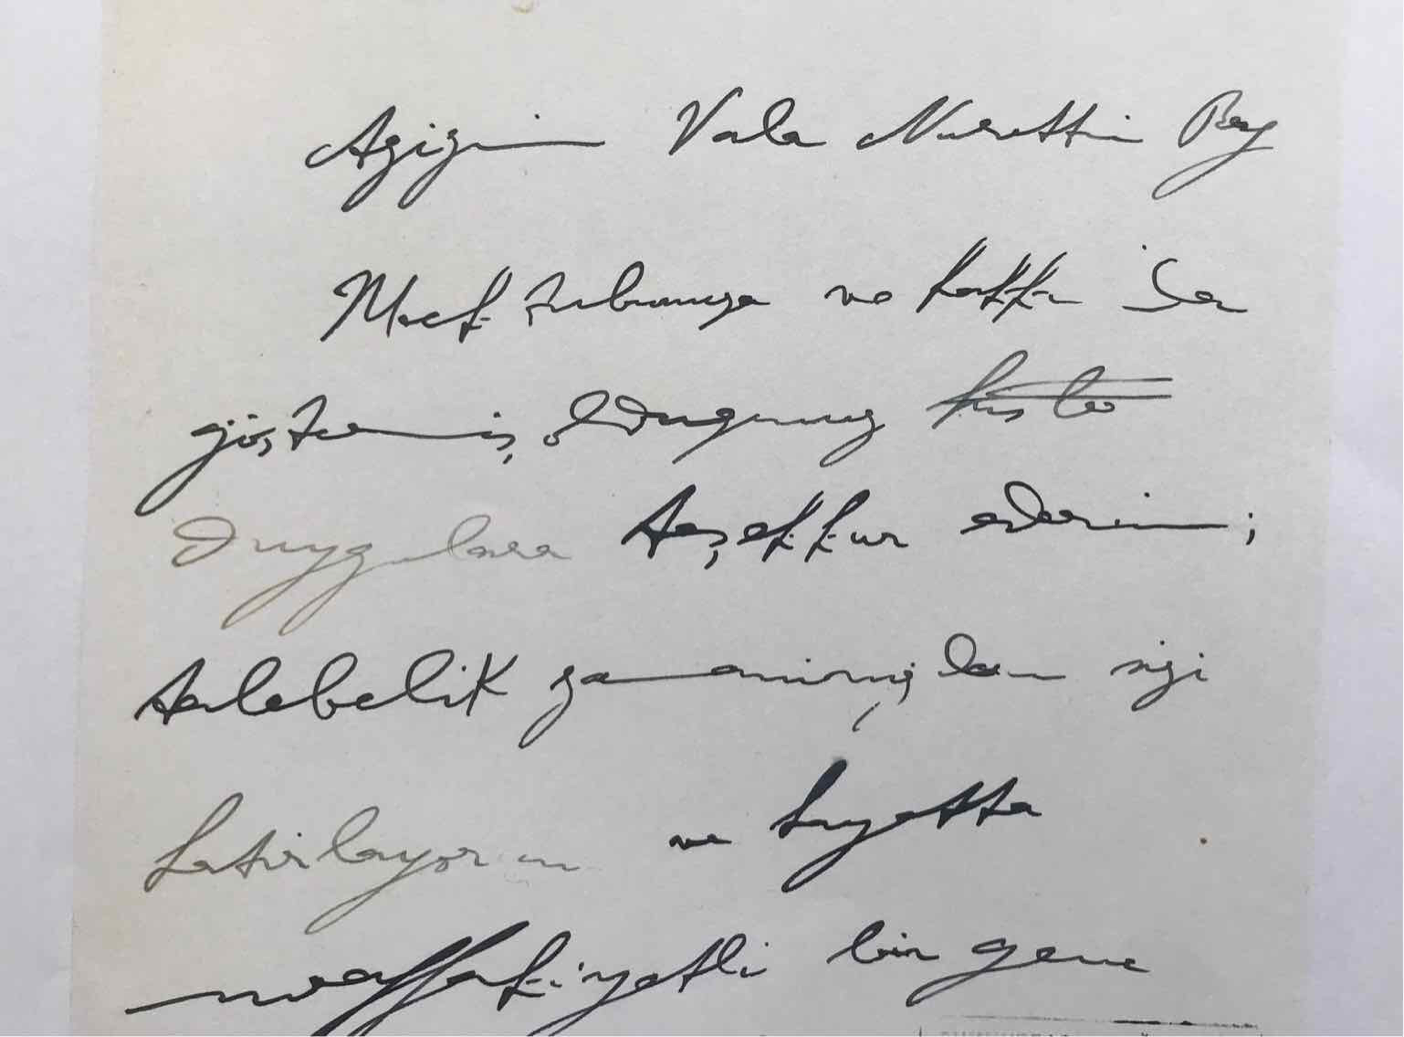 Azizim Vala Nurettin Bey
Mektubunuza ve hakkımda
göstermiş olduğunuz
duygulara teşekkür ederim;
talebelik zamanınızdan sizi
hatırlayorum ve hayatta
muvaffakiyetli bir genç